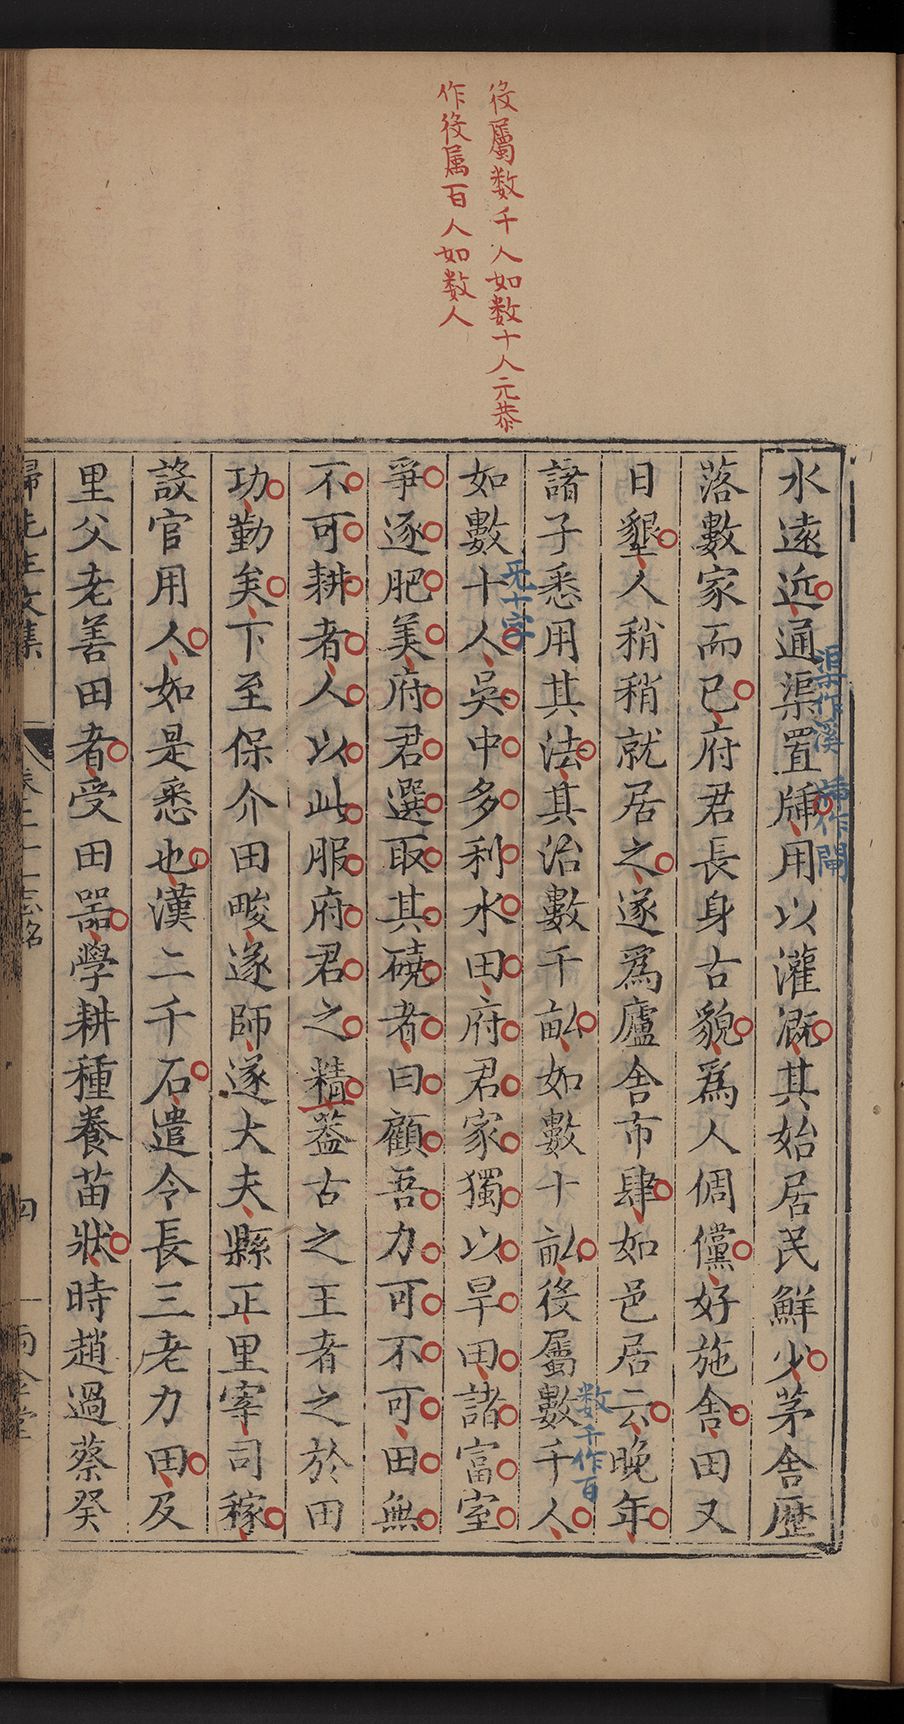 役屬数千人如数十人元恭
作役属百人如数人
水遠近通渠置牐用以灌溉其始居民鮮少茅舍歴
渠作溪 牐作閘
落數家而已府君長身古貌爲人倜儻好施舍田又
日墾人稍稍就居之遂爲廬舍市肆如邑居云晚年
諸子悉用其法其治數千畝如數十畝役屬數千人
数千作百
如數十人吳中多利水田府君家獨以旱田諸富室
无十字
爭逐肥美府君選取其磽者曰顧吾力可不可田無
不可耕者人以此服府君之精葢古之王者之於田
功勤矣下至保介田畯遂師遂大夫縣正里宰司稼
設官用人如是悉也漢二千石遣令長三老力田及
里父老善田者受田器學耕種養苗狀時趙過蔡癸
歸先生文集 卷二十一志銘 四